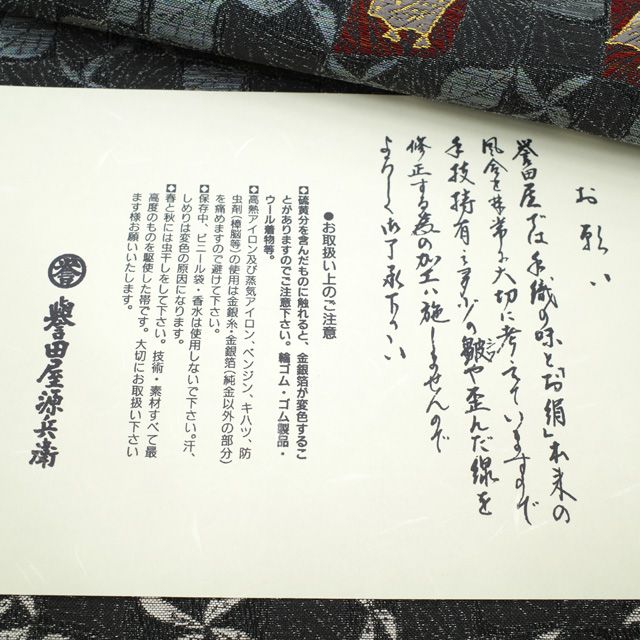 お願い
誉田屋では手織の味と「お絹」本来の
風合を非常に大切に考えていますので
手技特有の皺や歪んだ線を
シワ
修正する為の加工は施しませんので
よろしく御了承下さい
●お取扱い上のご注意
◆硫黄分を含んだものに触れると、金銀箔が変色するこ
とがありますのでご注意下さい。輪ゴム・ゴム製品・
ウール着物等。
◆高熱アイロン及び蒸気アイロン、ベンジン、キハツ、防
虫剤(樟脳等)の使用は金銀糸・金銀箔(純金以外の部分)
を痛めますので避けて下さい。
◆保存中、ビニール袋・香水は使用しないで下さい。汗、
しめりは変色の原因になります。
◆春と秋には虫干しをして下さい。技術・素材すべて最
高度のものを駆使した帯です。大切にお取扱い下さい
ます様お願いいたします。
誉
誉田屋源兵衛